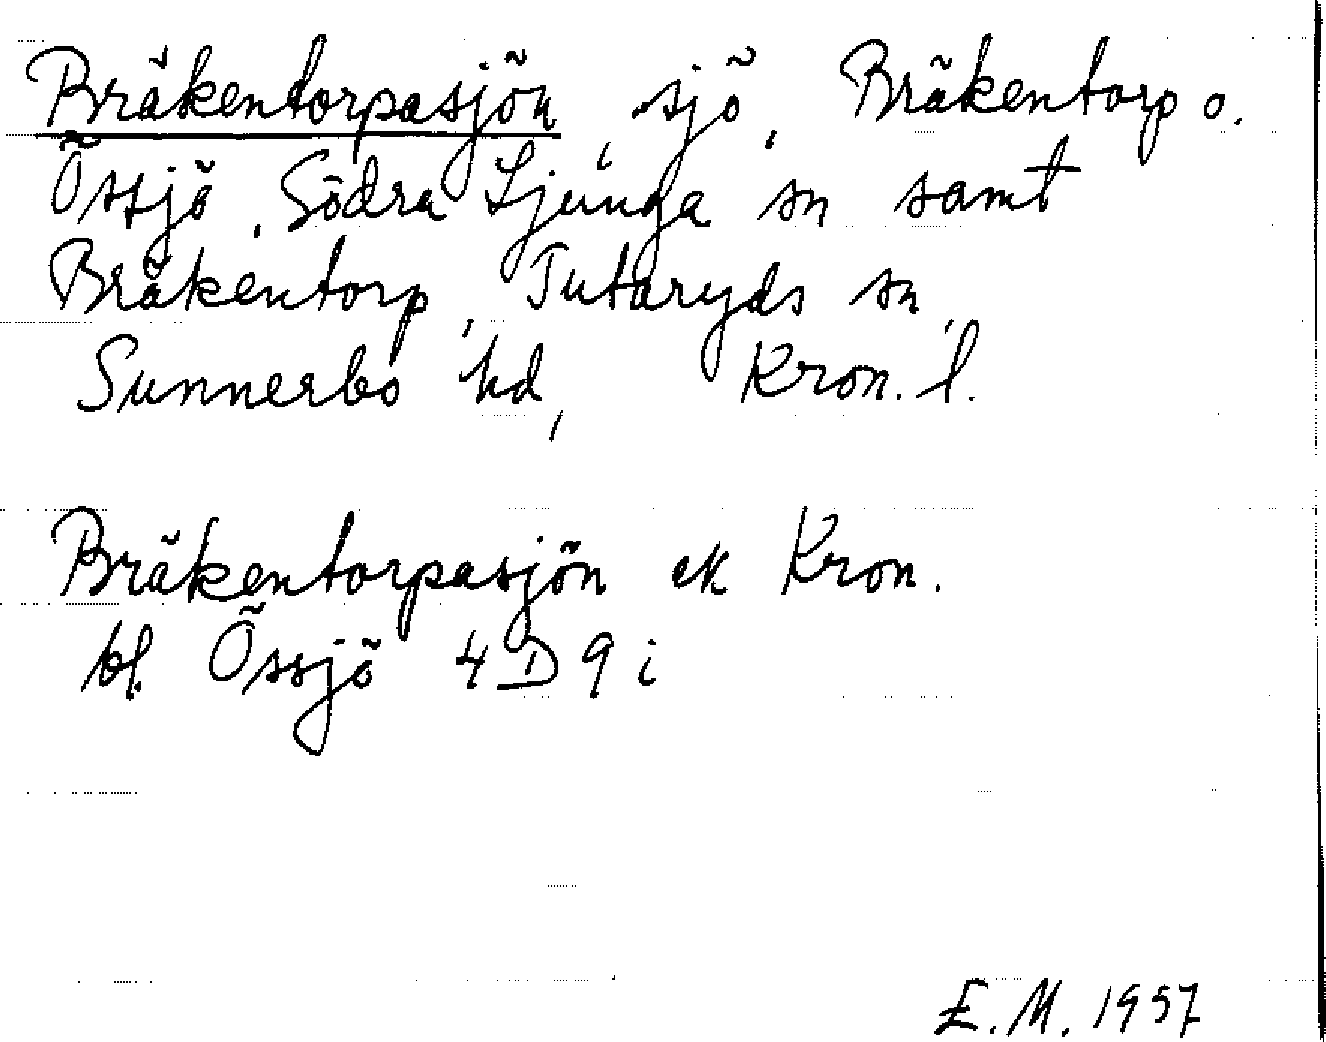 Bräkentorpasjön, sjö, Bräkentorp o.
Össjö, Södra Ljunga sn samt
Bräkentorp, Tutaryds sn,
Sunnerbo hd, Kron. l.
Bräkentorpasjön ek Kron.
bl. Össjö 4D9i
E.M. 1957